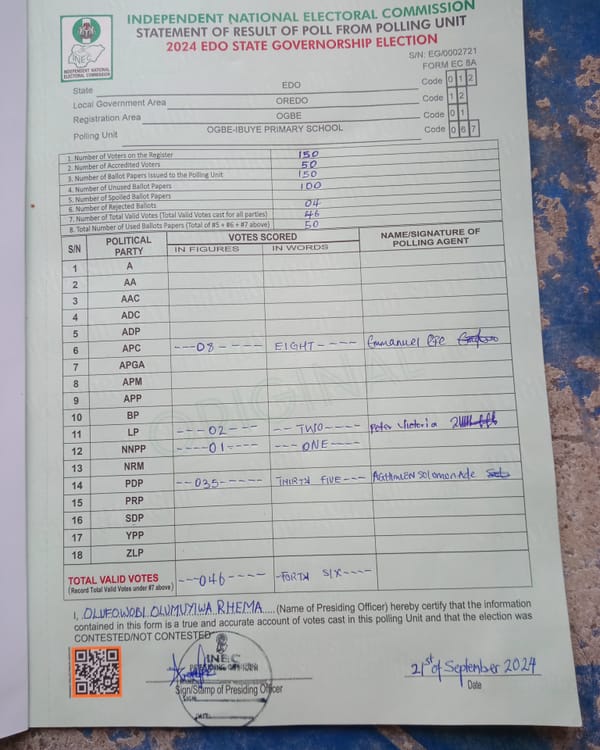 INDEPENDENT NATIONAL ELECTORAL COMMISSION
STATEMENT OF RESULT OF POLL FROM POLLING UNIT
2024 EDO STATE GOVERNORSHIP ELECTION
INEC
INDEPENDENT NATIONAL
ELECTORAL COMMISSION
S/N: EG/0002721
FORM EC 8A
State EDO Code 0 1 2
Local Government Area OREDO Code 1 2
Registration Area OGBE Code 0 1
Polling Unit OGBE-IBUYE PRIMARY SCHOOL Code 0 6 7
1. Number of Voters on the Register 150
2. Number of Accredited Voters 50
3. Number of Ballot Papers Issued to the Polling Unit 150
4. Number of Unused Ballot Papers 100
5. Number of Spoiled Ballot Papers
6. Number of Rejected Ballots 04
7. Number of Total Valid Votes (Total Valid Votes cast for all parties) 46
8. Total Number of Used Ballots Papers (Total of #5 + #6 + #7 above) 50
S/N POLITICAL PARTY VOTES SCORED NAME/SIGNATURE OF POLLING AGENT
IN FIGURES IN WORDS
1 A
2 AA
3 AAC
4 ADC
5 ADP
6 APC ---08----- EIGHT---- Emmanuel
7 APGA
8 APM
9 APP
10 BP
11 LP ----02--- --TWO---- Peter Victoria
12 NNPP ----01---- ---ONE----
13 NRM
14 PDP --035----- THIRTY FIVE--- Solomon Ade
15 PRP
16 SDP
17 YPP
18 ZLP
ORIGINAL
TOTAL VALID VOTES ---046---- -FORTY SIX----
(Record Total Valid Votes under #7 above)
I, OLUFOWOBI OLUMUYIWA RHEMA.....(Name of Presiding Officer) hereby certify that the information
contained in this form is a true and accurate account of votes cast in this polling Unit and that the election was
CONTESTED/NOT CONTESTED
INEC
PRESIDING OFFICER
Sign/Stamp of Presiding Officer
SIGN
DATE
21st of September 2024
Date